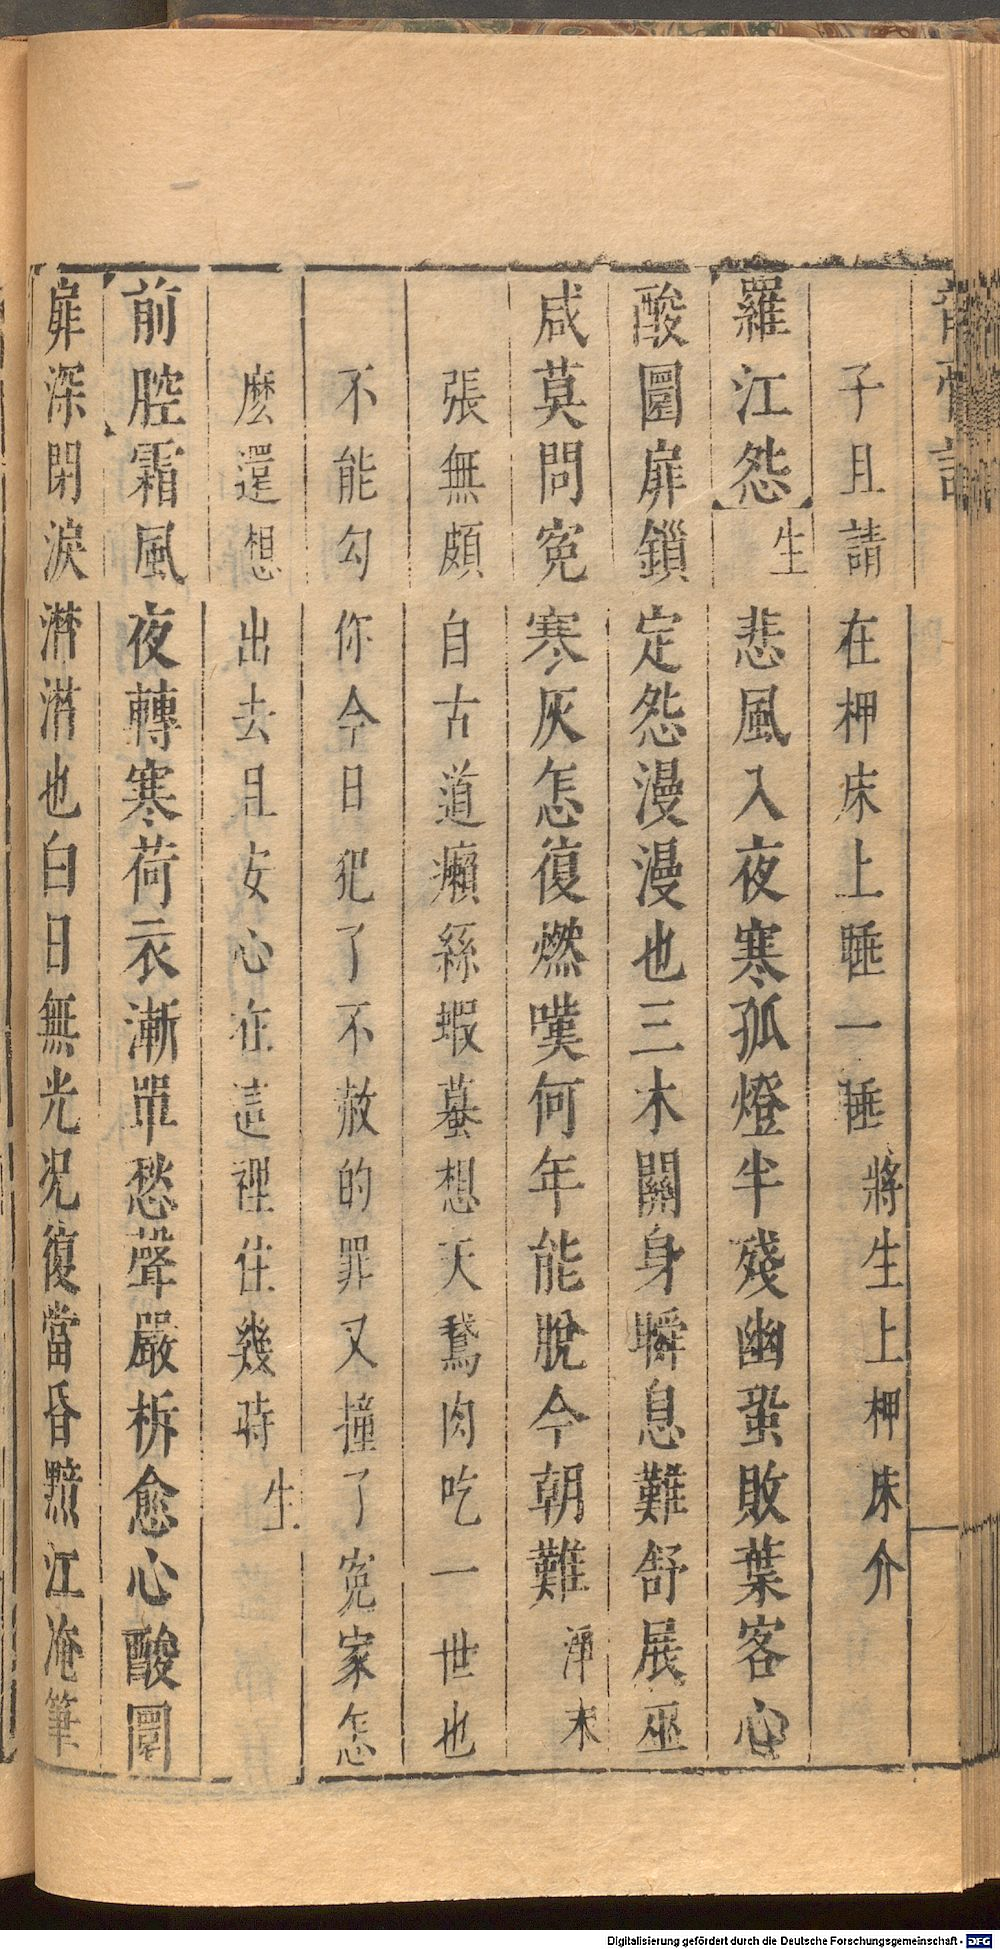 子且請在柙床上睡一睡將生上柙床介
羅江怨生悲風入夜寒孤燈半殘幽蛩敗葉客心
酸圜扉鎖定怨漫漫也三木關身瞬息難舒展巫
咸莫問寃寒灰怎復燃嘆何年能脫今朝難淨末
張無頗自古道癩絲蝦蟇想天鵞肉吃一世也
不能勾你今日犯了不赦的罪又撞了寃家怎
麽還想出去且安心在這裡住幾時生
前腔霜風夜轉寒荷衣漸單愁聲嚴柝愈心酸圜
扉深閉淚潸潸也白日無光况復當昏黯江淹筆
Digitalisierung gefördert durch die Deutsche Forschungsgemeinschaft - DFG